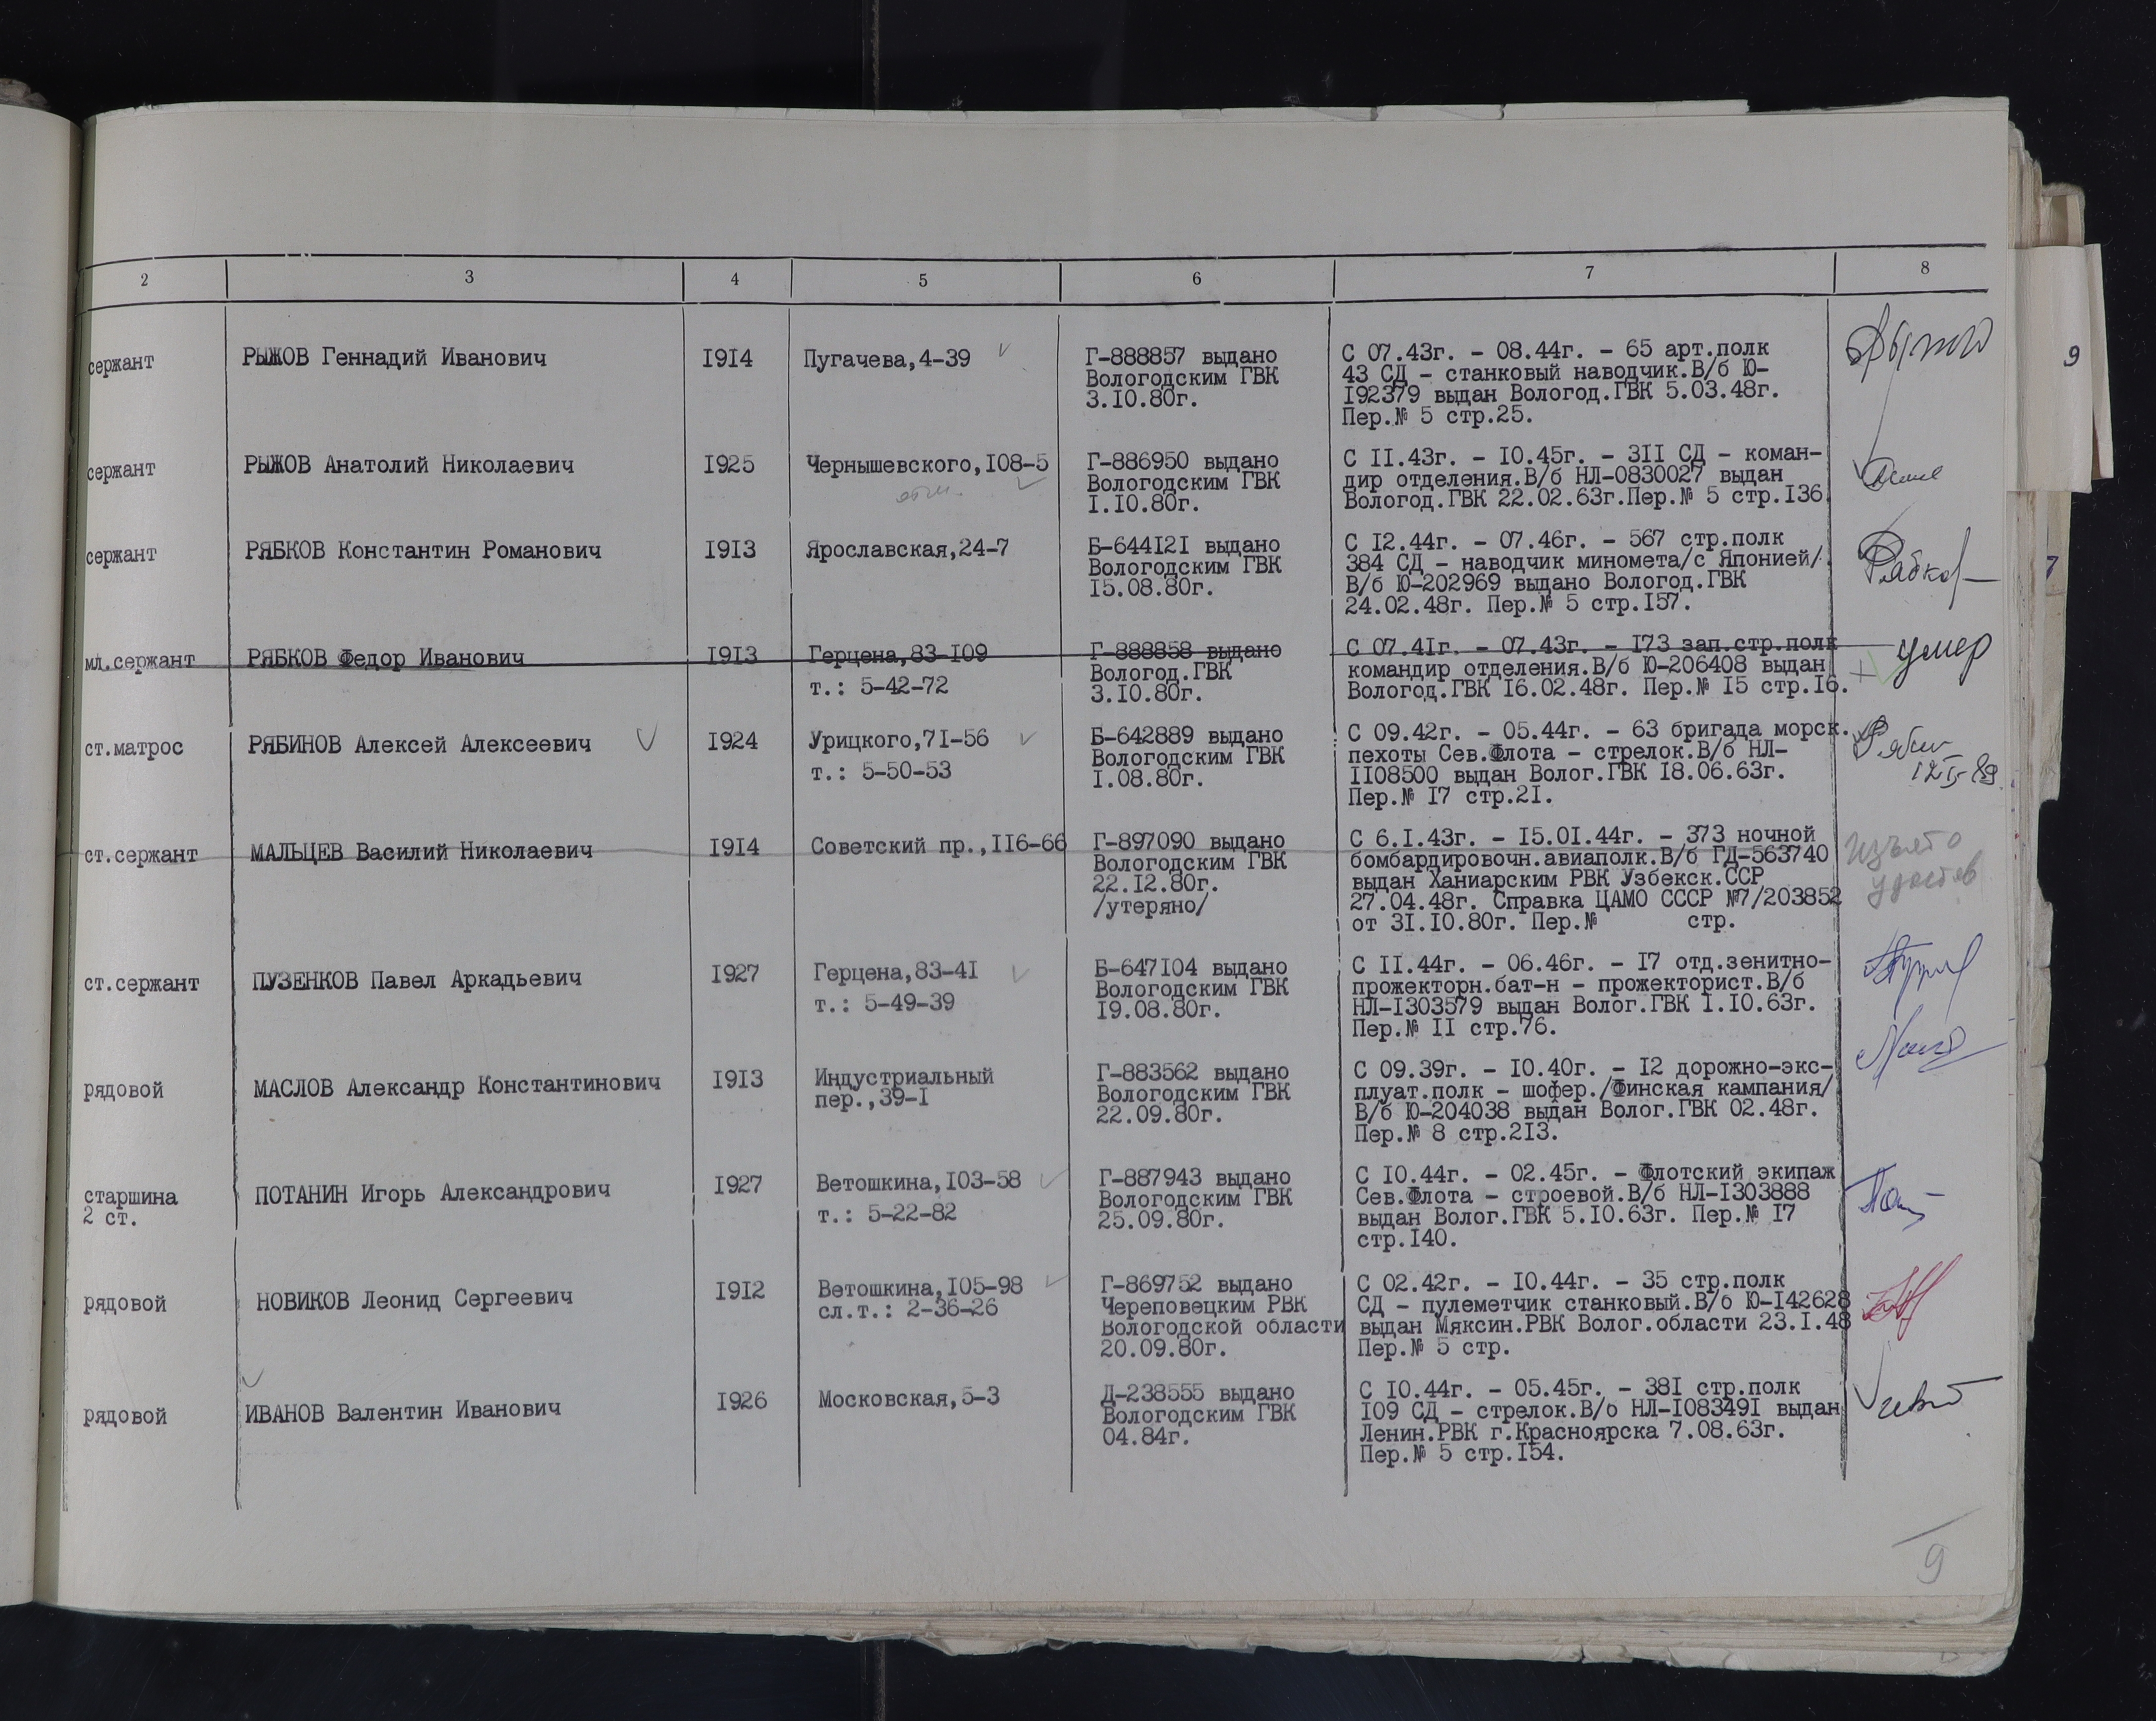 2 3 4 5 6 7 8
9
сержант РЫЖОВ Геннадий Иванович 1914 Пугачева,4-39 Г-888857 выдано С 07.43г. - 08.44г. - 65 арт.полк
Вологодским ГВК 43 СД - станковый наводчик.В/б Ю-
3.10.80г. 192379 выдан Вологод.ГВК 5.03.48г.
Пер.№ 5 стр.25.
сержант РЫЖОВ Анатолий Николаевич 1925 Чернышевского,108-5 Г-886950 выдано С 11.43г. - 10.45г. - 311 СД - коман-
Вологодским ГВК дир отделения.В/б НЛ-0830027 выдан
1.10.80г. Вологод.ГВК 22.02.63г.Пер.№ 5 стр.136
сержант РЯБКОВ Константин Романович 1913 Ярославская,24-7 Б-644121 выдано С 12.44г. - 07.46г. - 567 стр.полк Рябков
Вологодским ГВК 384 СД - наводчик миномета/с Японией/.
15.08.80г. В/б Ю-202969 выдано Вологод.ГВК
24.02.48г. Пер.№ 5 стр.157.
7
мл.сержант РЯБКОВ Федор Иванович 1913 Герцена,83-109 Г-888858 выдано С 07.41г. - 07.43г. - 173 зап.стр.полк умер
Вологод.ГВК командир отделения.В/б Ю-206408 выдан
т.: 5-42-72 3.10.80г. Вологод.ГВК 16.02.48г. Пер.№ 15 стр.16.
ст.матрос РЯБИНОВ Алексей Алексеевич 1924 Урицкого,71-56 Б-642889 выдано С 09.42г. - 05.44г. - 63 бригада морск.
Вологодским ГВК пехоты Сев.Флота - стрелок.В/б НЛ-
т.: 5-50-53 1.08.80г. 1108500 выдан Волог.ГВК 18.06.63г.
Пер.№ 17 стр.21.
ст.сержант МАЛЬЦЕВ Василий Николаевич 1914 Советский пр.,116-66 Г-897090 выдано С 6.1.43г. - 15.01.44г. - 373 ночной изъято
Вологодским ГВК бомбардировочн.авиаполк.В/б ГД-563740
22.12.80г. выдан Ханиарским РВК Узбекск.ССР
/утеряно/ 27.04.48г. Справка ЦАМО СССР №7/203852
от 31.10.80г. Пер.№ стр.
ст.сержант ПУЗЕНКОВ Павел Аркадьевич 1927 Герцена,83-41 Б-647104 выдано С 11.44г. - 06.46г. - 17 отд.зенитно-
Вологодским ГВК прожекторн.бат-н - прожекторист.В/б
т.: 5-49-39 19.08.80г. НЛ-1303579 выдан Волог.ГВК 1.10.63г.
Пер.№ 11 стр.76.
рядовой МАСЛОВ Александр Константинович 1913 Индустриальный Г-883562 выдано С 09.39г. - 10.40г. - 12 дорожно-экс-
пер.,39-1 Вологодским ГВК плуат.полк - шофер./Финская кампания/
22.09.80г. В/б Ю-204038 выдан Волог.ГВК 02.48г.
Пер.№ 8 стр.213.
старшина ПОТАНИН Игорь Александрович 1927 Ветошкина,103-58 Г-887943 выдано С 10.44г. - 02.45г. - Флотский экипаж
2 ст. Вологодским ГВК Сев.Флота - строевой.В/б НЛ-1303888
т.: 5-22-82 25.09.80г. выдан Волог.ГВК 5.10.63г. Пер.№ 17
стр.140.
рядовой НОВИКОВ Леонид Сергеевич 1912 Ветошкина,105-98 Г-869752 выдано С 02.42г. - 10.44г. - 35 стр.полк
сл.т.: 2-36-26 Череповецким РВК СД - пулеметчик станковый.В/б Ю-142628
Вологодской области выдан Мяксин.РВК Волог.области 23.1.48
20.09.80г. Пер.№ 5 стр.
рядовой ИВАНОВ Валентин Иванович 1926 Московская,5-3 Д-238555 выдано С 10.44г. - 05.45г. - 381 стр.полк
Вологодским ГВК 109 СД - стрелок.В/б НЛ-1083491 выдан
04.84г. Ленин.РВК г.Красноярска 7.08.63г.
Пер.№ 5 стр.154.
9